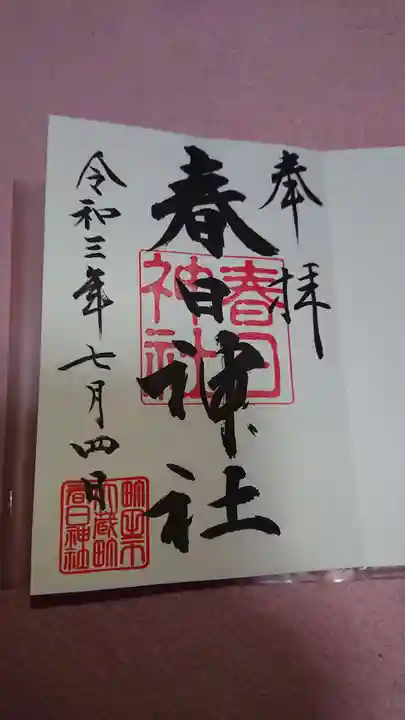 奉拝
春日神社
春日
神社
令和三年七月四日
春日神社